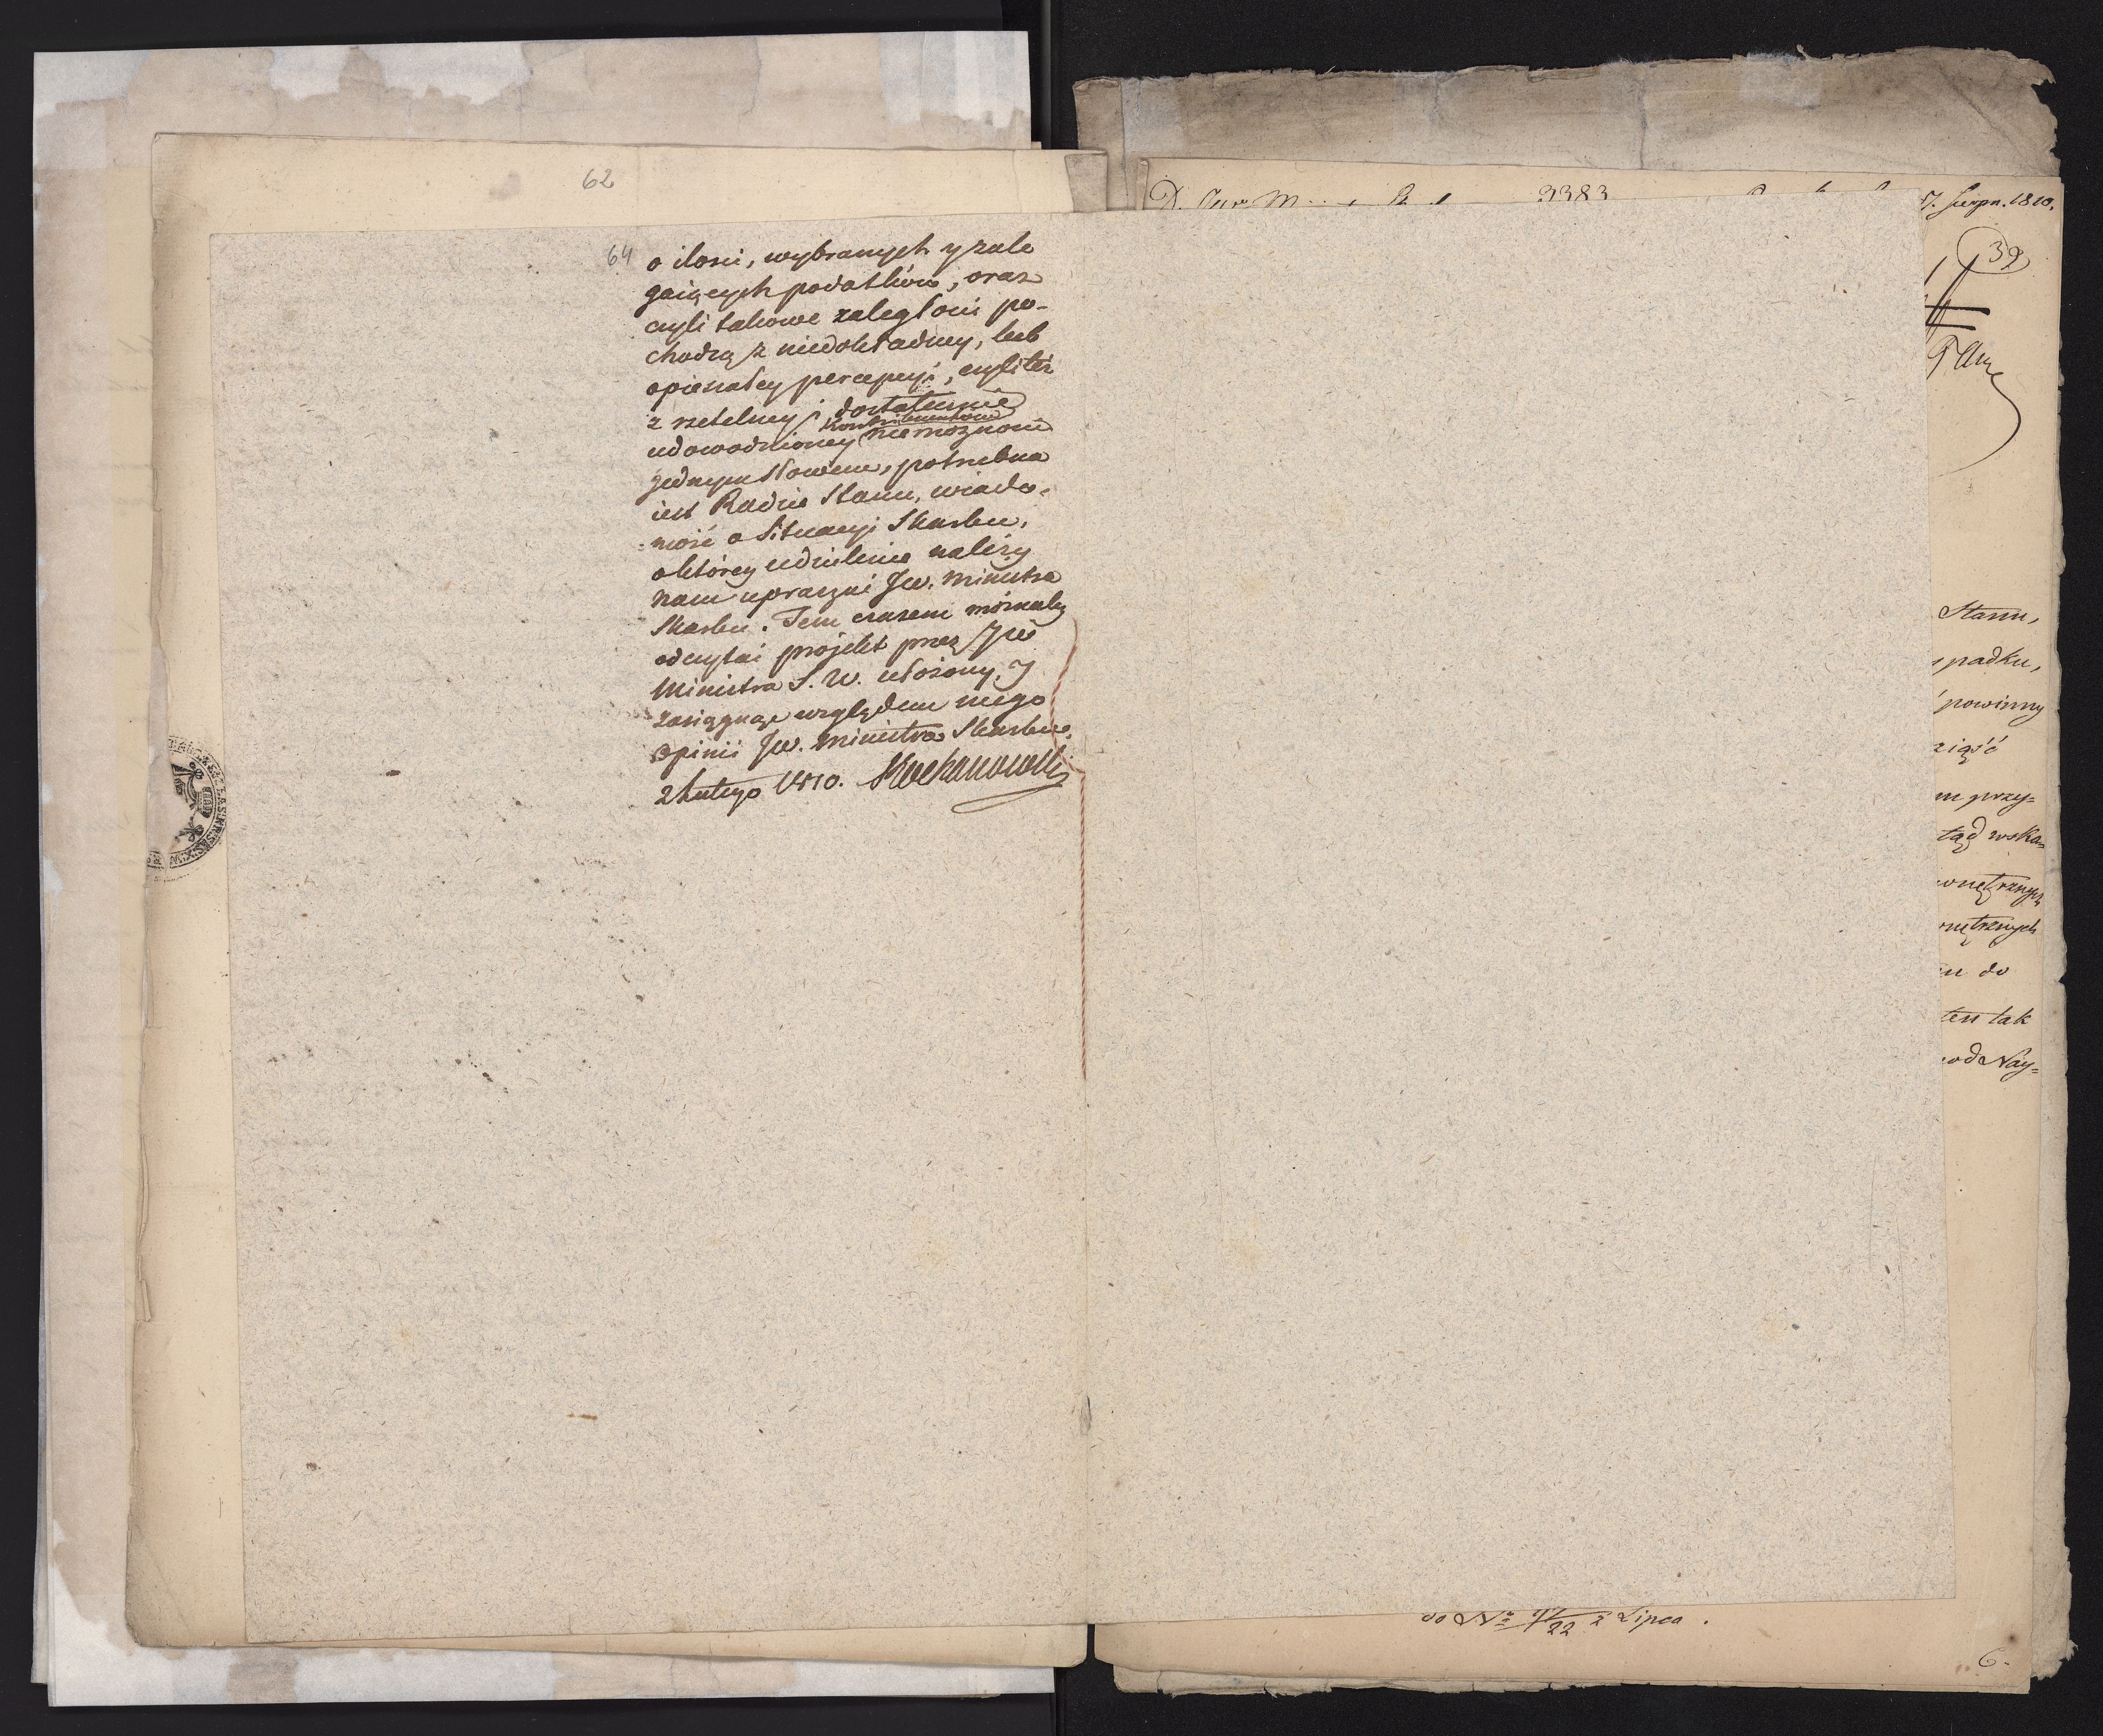 62
64
o ilosci, wybranych y zale
gaiących podatków, oraz
czyli takowe zaległosci po-
chodzą z niedokładney, lub
opieszałey percepcyi, czyli też
z rzetelney, dostatecznie
kontribuentów
udowodnioney niemożnosci
jednym słowem, potrzebna
iest Radzie Stanu, wiado-
mość o Situacyi Skarbu,
o którey udzielenie należy
nam upraszać Jw. Ministra
Skarbu. Tem czasem możnaby
odczytać projekt przez
Ministra S. W. ułożony, y
zasięgnąć względem niego
opinii Jw. Ministra Skarbu.
2 Lutego 1810. Kochanowski
3383
7. Sierpn. 1810.
39
Stanu,
padku,
powinny
ziąść
m przy=
tąd wska=
wnętrznych
wnętrznych
do
ten tak
od Náy=
do No 22 z Lipca.
6.